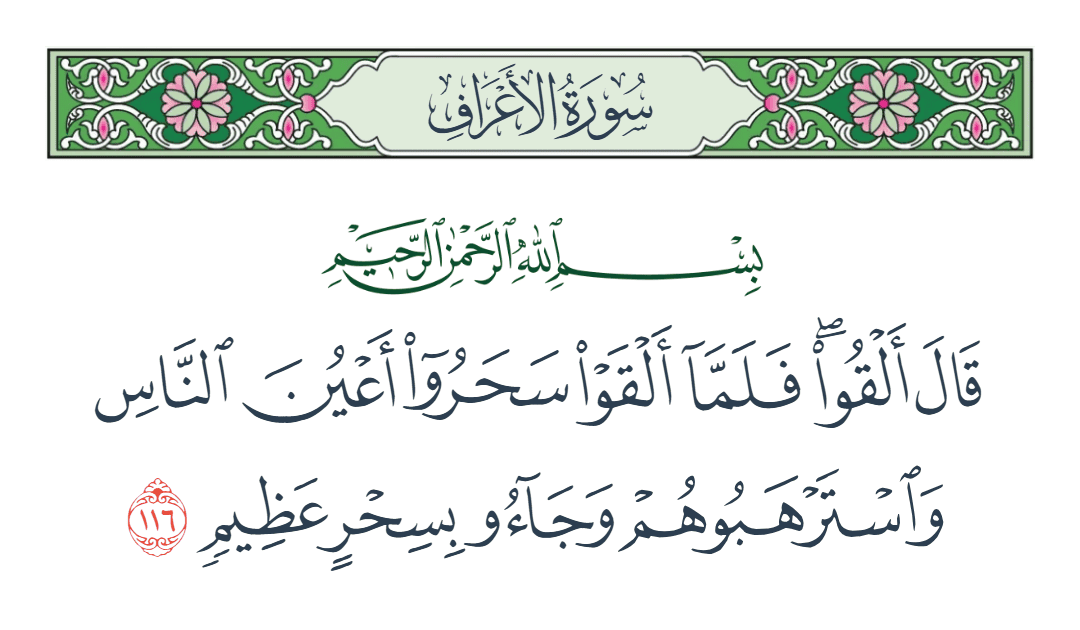 سُورَةُ الأَعْرَافِ
بِسْمِ ٱللَّهِ ٱلرَّحْمَٰنِ ٱلرَّحِيمِ
قَالَ أَلْقُوا۟ ۖ فَلَمَّآ أَلْقَوْا۟ سَحَرُوٓا۟ أَعْيُنَ ٱلنَّاسِ
وَٱسْتَرْهَبُوهُمْ وَجَآءُو بِسِحْرٍ عَظِيمٍ ١١٦